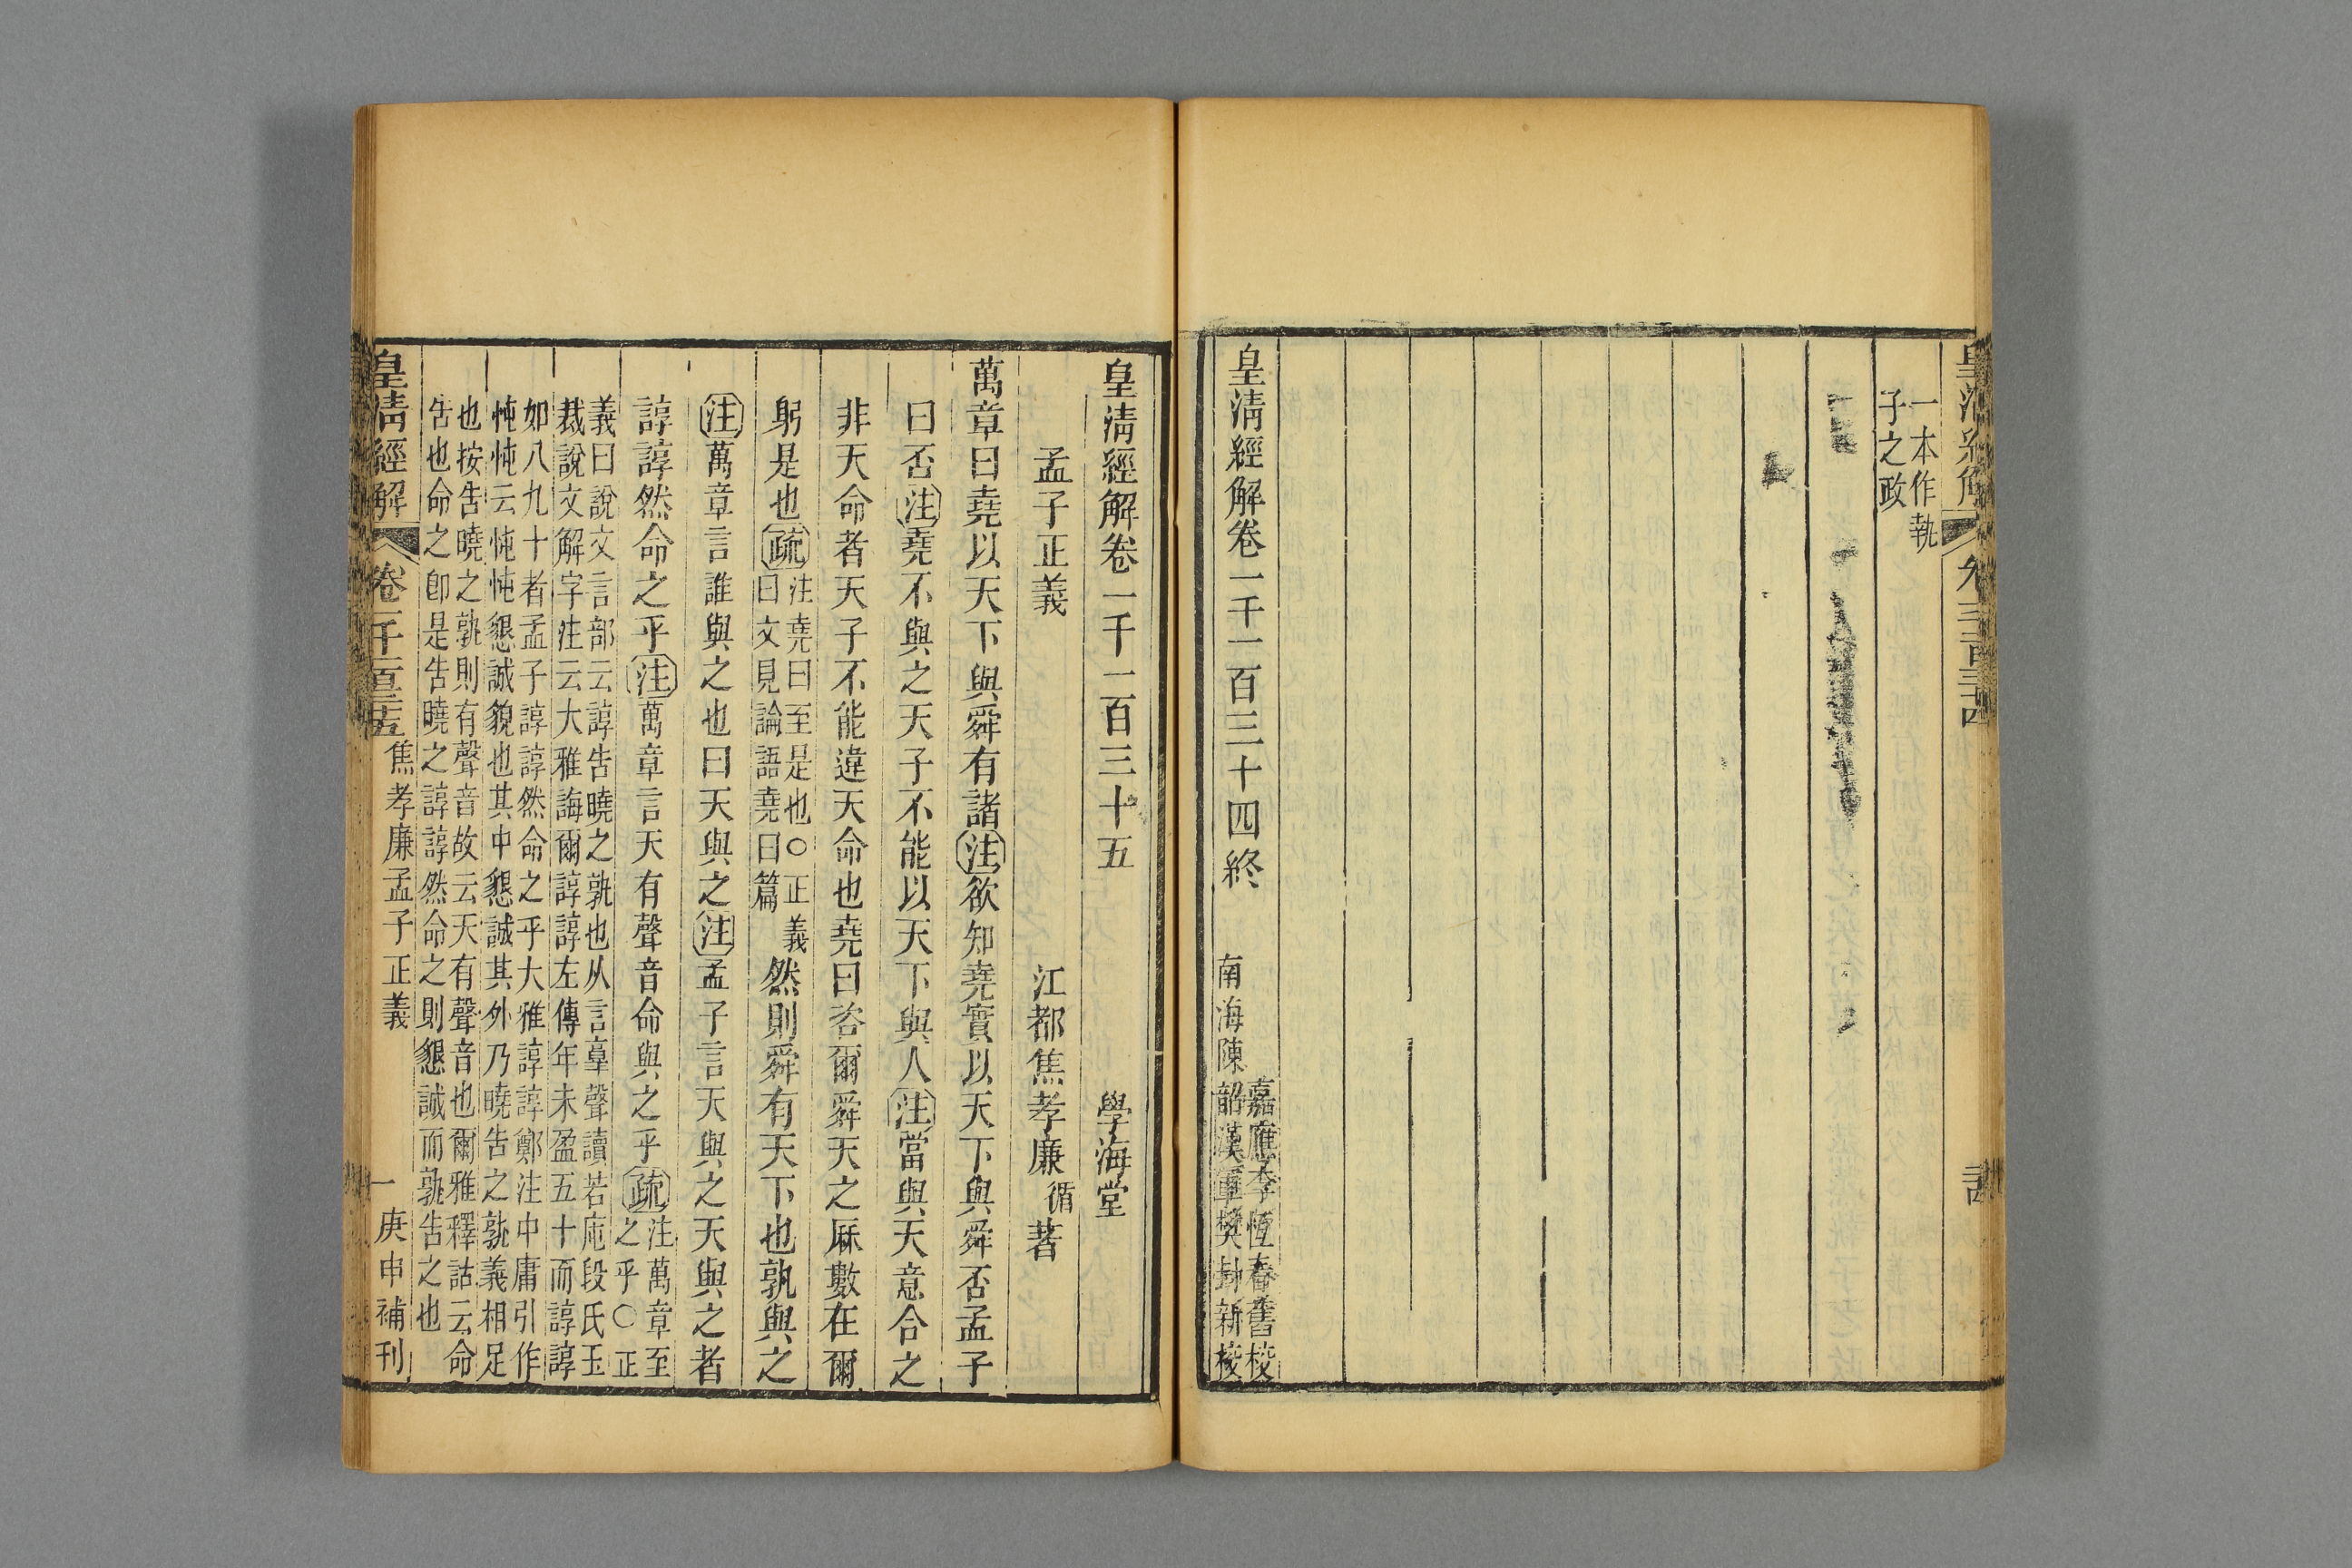 一本作執
子之政
皇清經解卷一千一百三十四終
嘉應李恆春舊校
南海陳韶漢軍樊封新校
皇清經解卷一千一百三十五
學海堂
孟子正義
江都焦孝廉循著
萬章曰堯以天下與舜有諸注欲知堯實以天下與舜否孟子
曰否注堯不與之天子不能以天下與人注當與天意合之
非天命者天子不能違天命也堯曰咨爾舜天之厤數在爾
躬是也疏注堯曰至是也○正義
曰文見論語堯曰篇
然則舜有天下也孰與之
注萬章言誰與之也曰天與之注孟子言天與之天與之者
諄諄然命之乎注萬章言天有聲音命與之乎疏注萬章至
之乎○正
義曰說文言部云諄告曉之孰也从言𦎫聲讀若庉段氏玉
裁說文解字注云大雅誨爾諄諄左傳年未盈五十而諄諄
如八九十者孟子諄諄然命之乎大雅諄諄鄭注中庸引作
忳忳云忳忳懇誠貌也其中懇誠其外乃曉告之孰義相足
也按告曉之孰則有聲音故云天有聲音也爾雅釋詁云命
告也命之卽是告曉之諄諄然命之則懇誠而孰告之也
皇清經解
卷一千一百三十五
焦孝廉孟子正義
一
庚申補刊